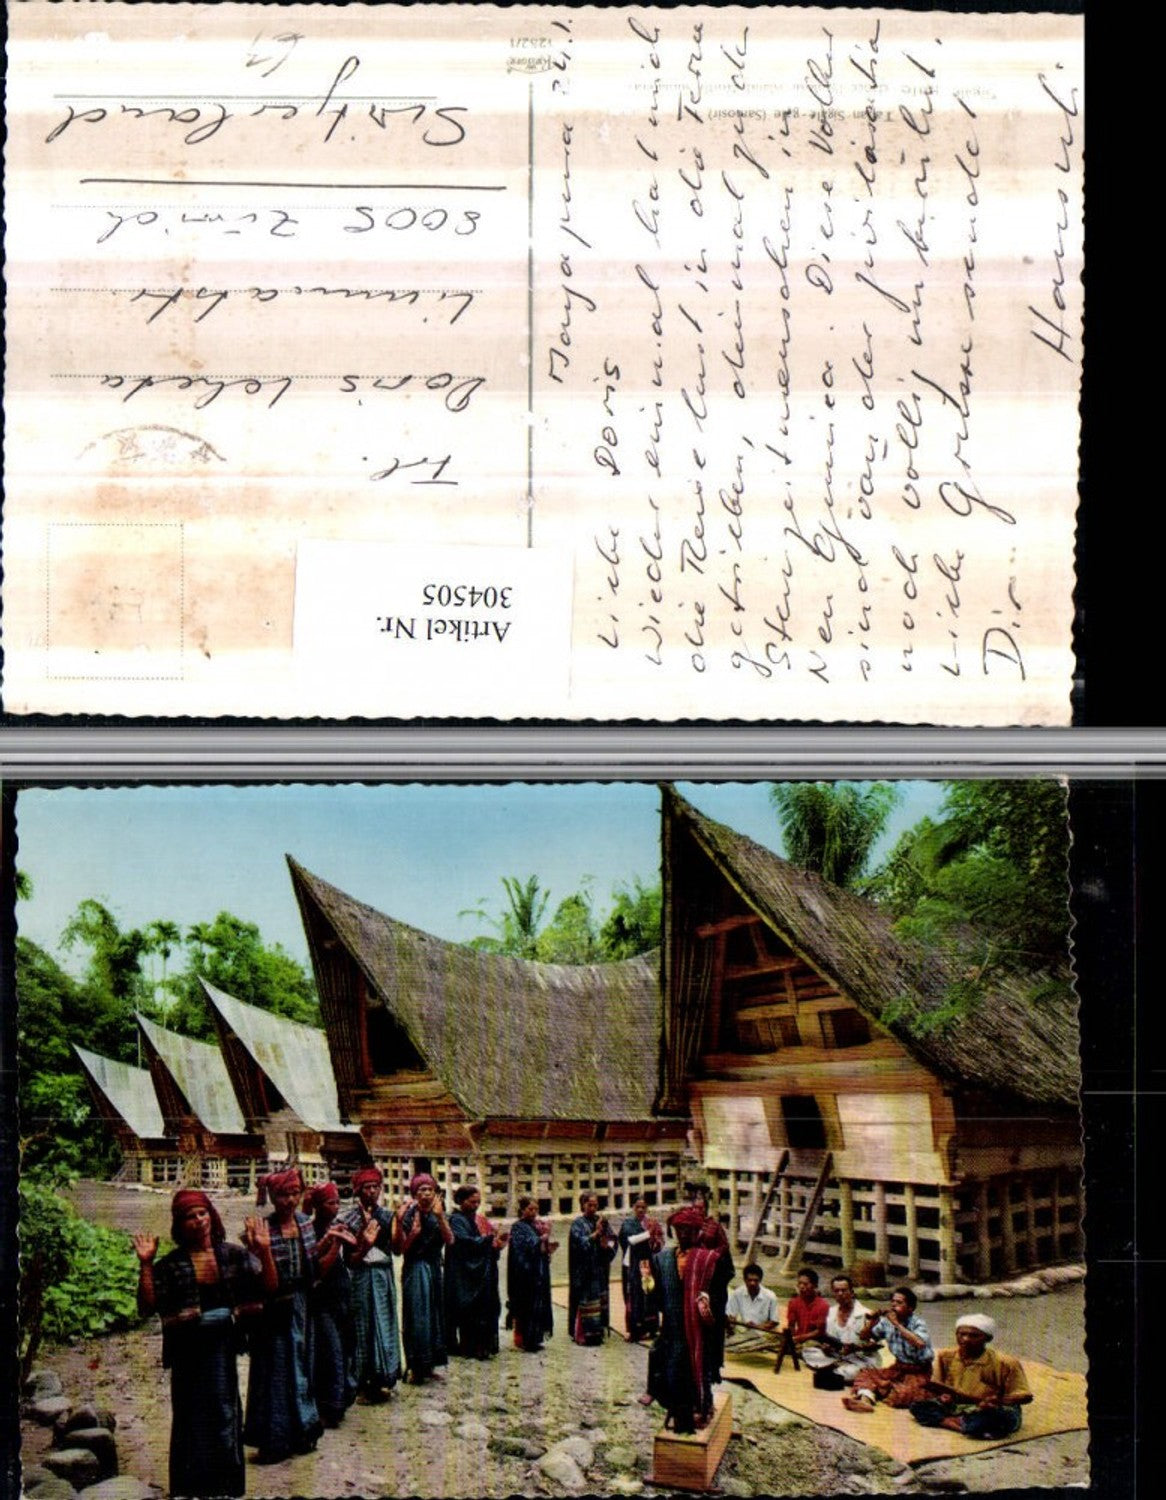 Tarian Sigale-gale (Samosir)
1252/1
Jayapura 24.1.
Liebe Doris
Wieder einmal hat mich
die Reise lust in die Ferne
getrieben, diesmal zu den
Steinzeitmenschen in
Neu Guinea. Diese Völker
sind von der Zivilisation
noch völlig unberührt.
Liebe Grüsse sendet
Dir
Hansueli
Frl.
Doris
Limmatstr.
8005 Zürich
Switzerland
Artikel Nr.
304505